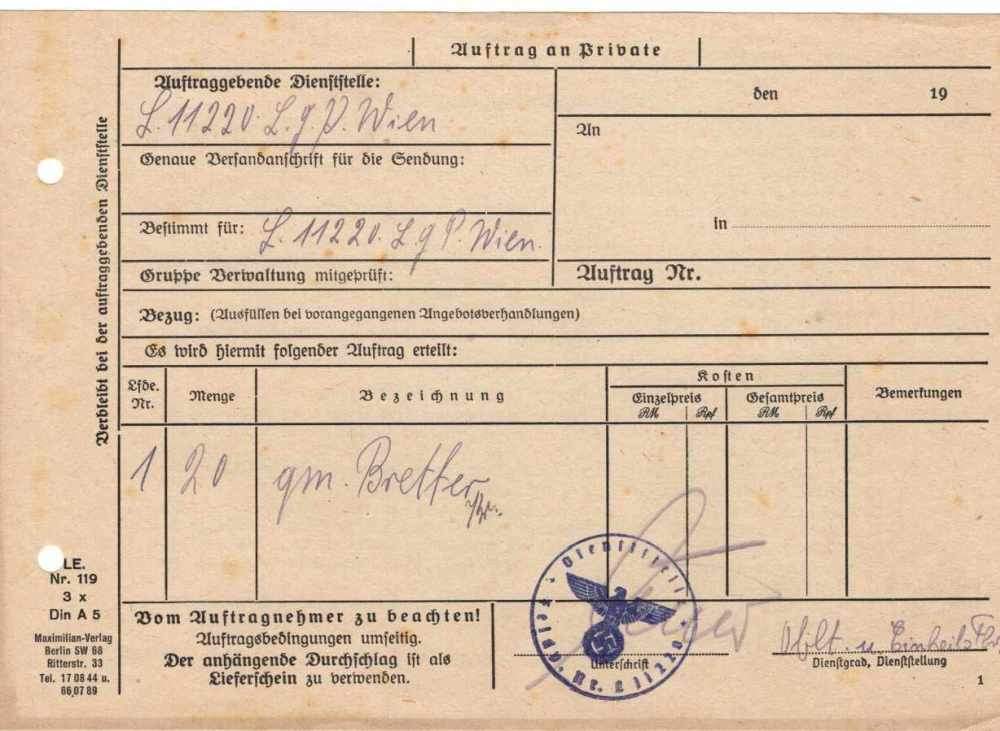 Auftrag an Private
Auftraggebende Dienststelle:
L. 11220. L. g. P. Wien
Genaue Versandanschrift für die Sendung:
Bestimmt für: L. 11220. L. g. P. Wien.
Gruppe Verwaltung mitgeprüft:
den 19
An
in
Auftrag Nr.
Bezug: (Ausfüllen bei vorangegangenen Angebotsverhandlungen)
Es wird hiermit folgender Auftrag erteilt:
Lfde. Nr.
Menge
Bezeichnung
Kosten
Einzelpreis
RM Rpf
Gesamtpreis
RM Rpf
Bemerkungen
1 20 qm. Bretter
Verbleibt bei der auftraggebenden Dienststelle
LE.
Nr. 119
3 x
Din A 5
Maximilian-Verlag
Berlin SW 68
Ritterstr. 33
Tel. 17 08 44 u.
66 07 89
Vom Auftragnehmer zu beachten!
Auftragsbedingungen umseitig.
Der anhängende Durchschlag ist als
Lieferschein zu verwenden.
Dienststelle Feldp. Nr. L 11220
Unterschrift
u. Einheits
Dienstgrad, Dienststellung
1